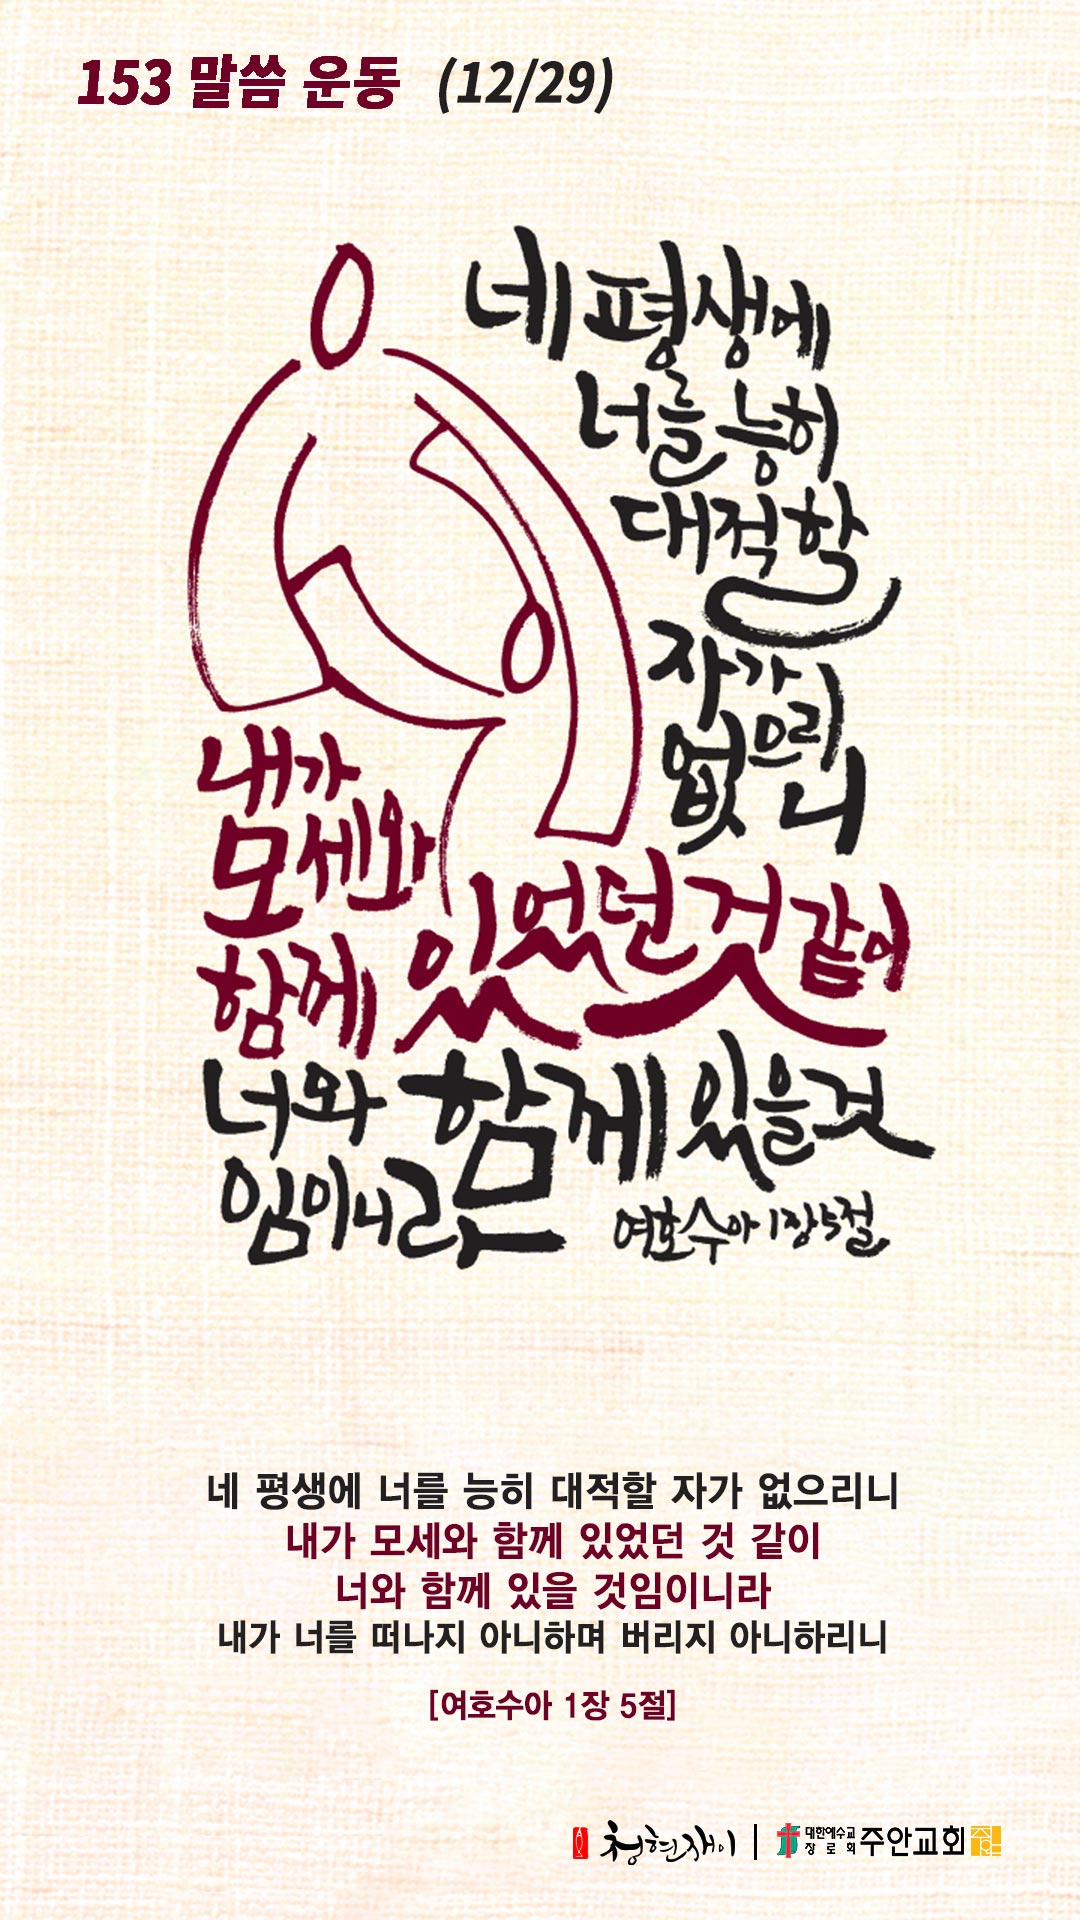 153 말씀 운동 (12/29)
네 평생에
너를 능히
대적할
자가
없으리
니
내가
모세와
함께 있었던 것 같이
너와 함께 있을 것
임이니라
여호수아 1장 5절
네 평생에 너를 능히 대적할 자가 없으리니
내가 모세와 함께 있었던 것 같이
너와 함께 있을 것임이니라
내가 너를 떠나지 아니하며 버리지 아니하리니
[여호수아 1장 5절]
청현재이 | 대한예수교
장로회 주안교회